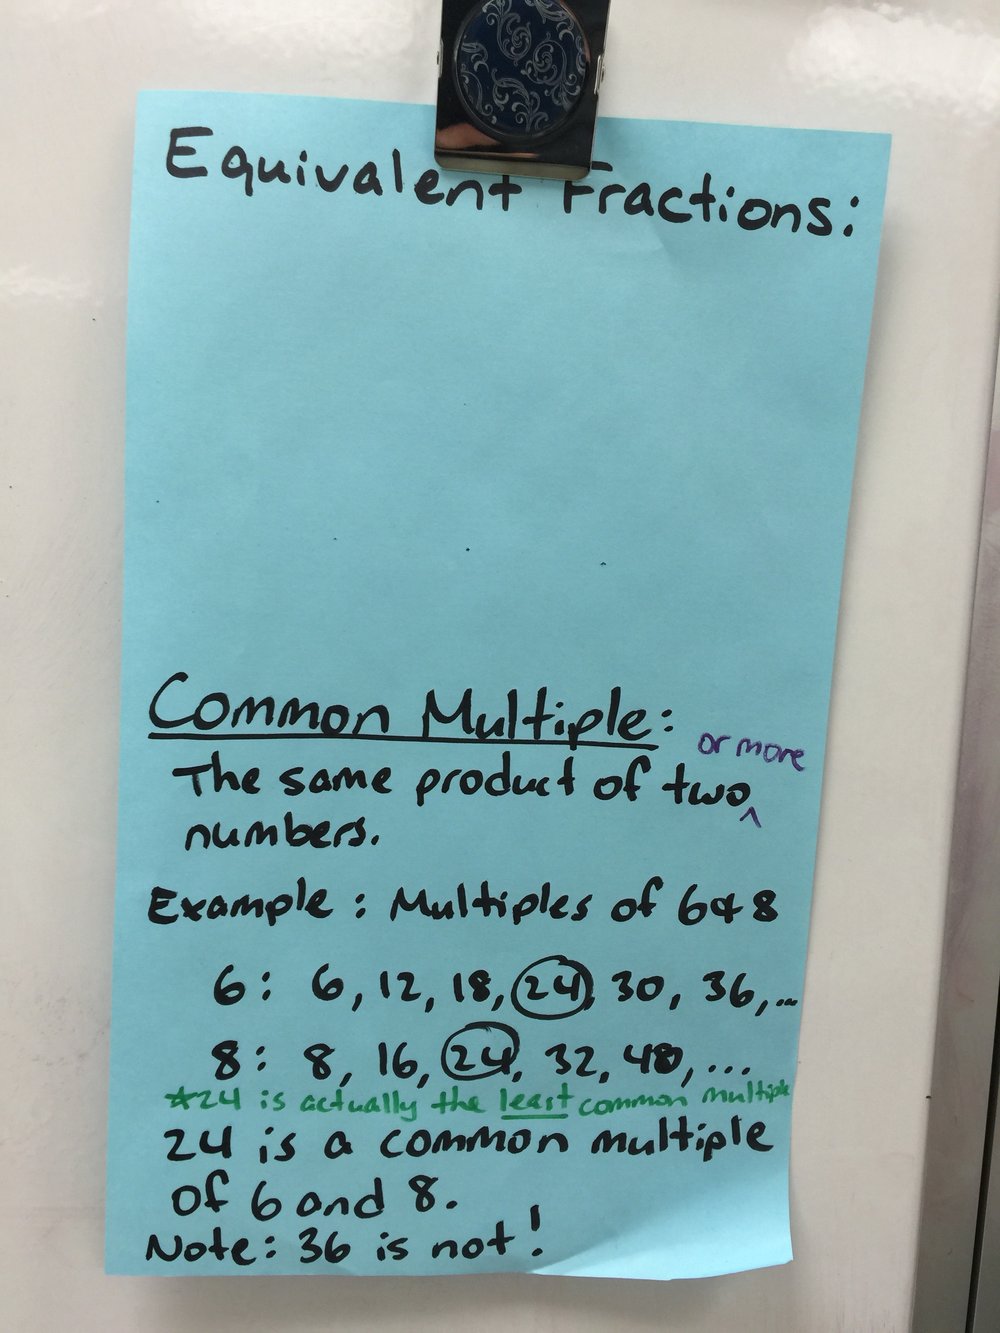 Equivalent Fractions:
Common Multiple:
or more
The same product of two ^
numbers.
Example: Multiples of 6 & 8
6: 6, 12, 18, 24, 30, 36,...
8: 8, 16, 24, 32, 40, ...
*24 is actually the least common multiple
24 is a common multiple
of 6 and 8.
Note: 36 is not!